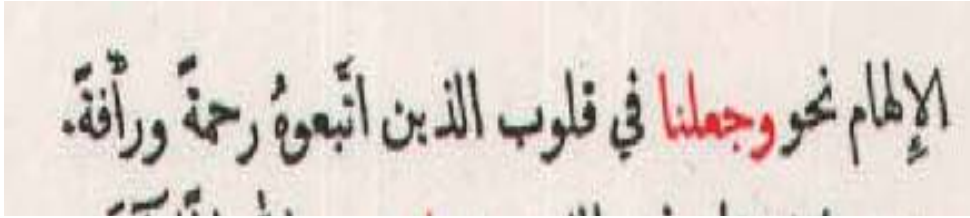 الإلهام نحو وجعلنا في قلوب الذين اتَّبعوهُ رحمةً ورأْفةً.